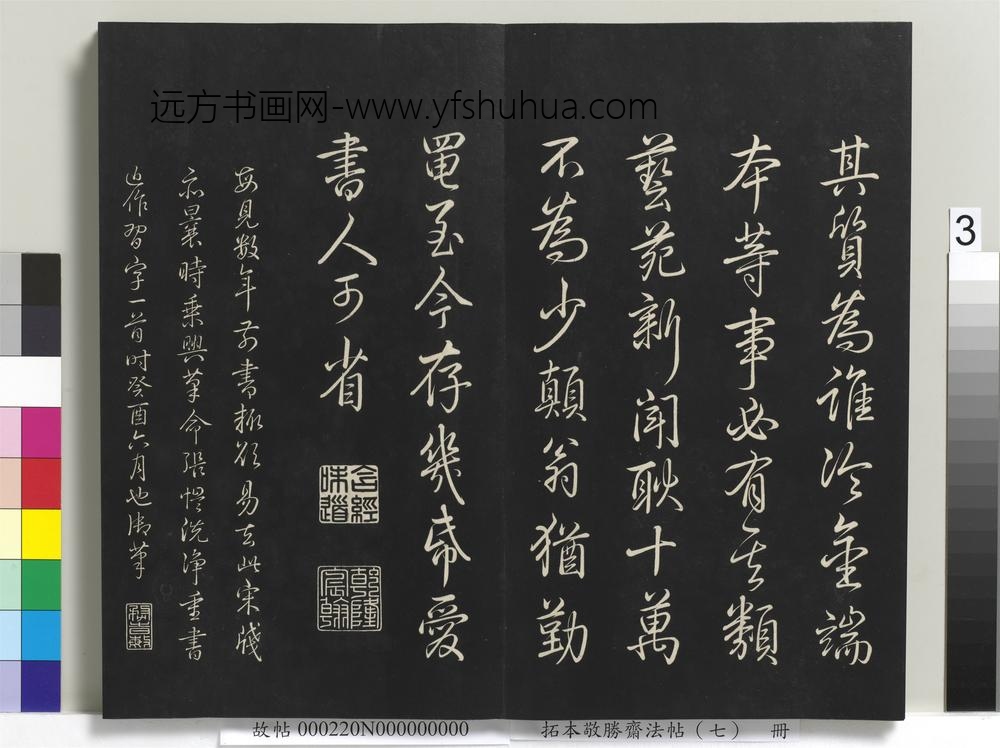 远方书画网-www.yfshuhua.com
其質為誰冷金端
本等事必有其類
藝苑新聞耿十萬
不為少顛翁猶勤
黽至今存幾帋愛
書人可省
含經味道
乾隆宸翰
每見数年前書輒欲易去此宋牋
亦曩時乘興筆命張愷洗净重書
近作習字一首时癸酉六月也御筆
3
故帖 000220N000000000
拓本敬勝齋法帖（七） 冊